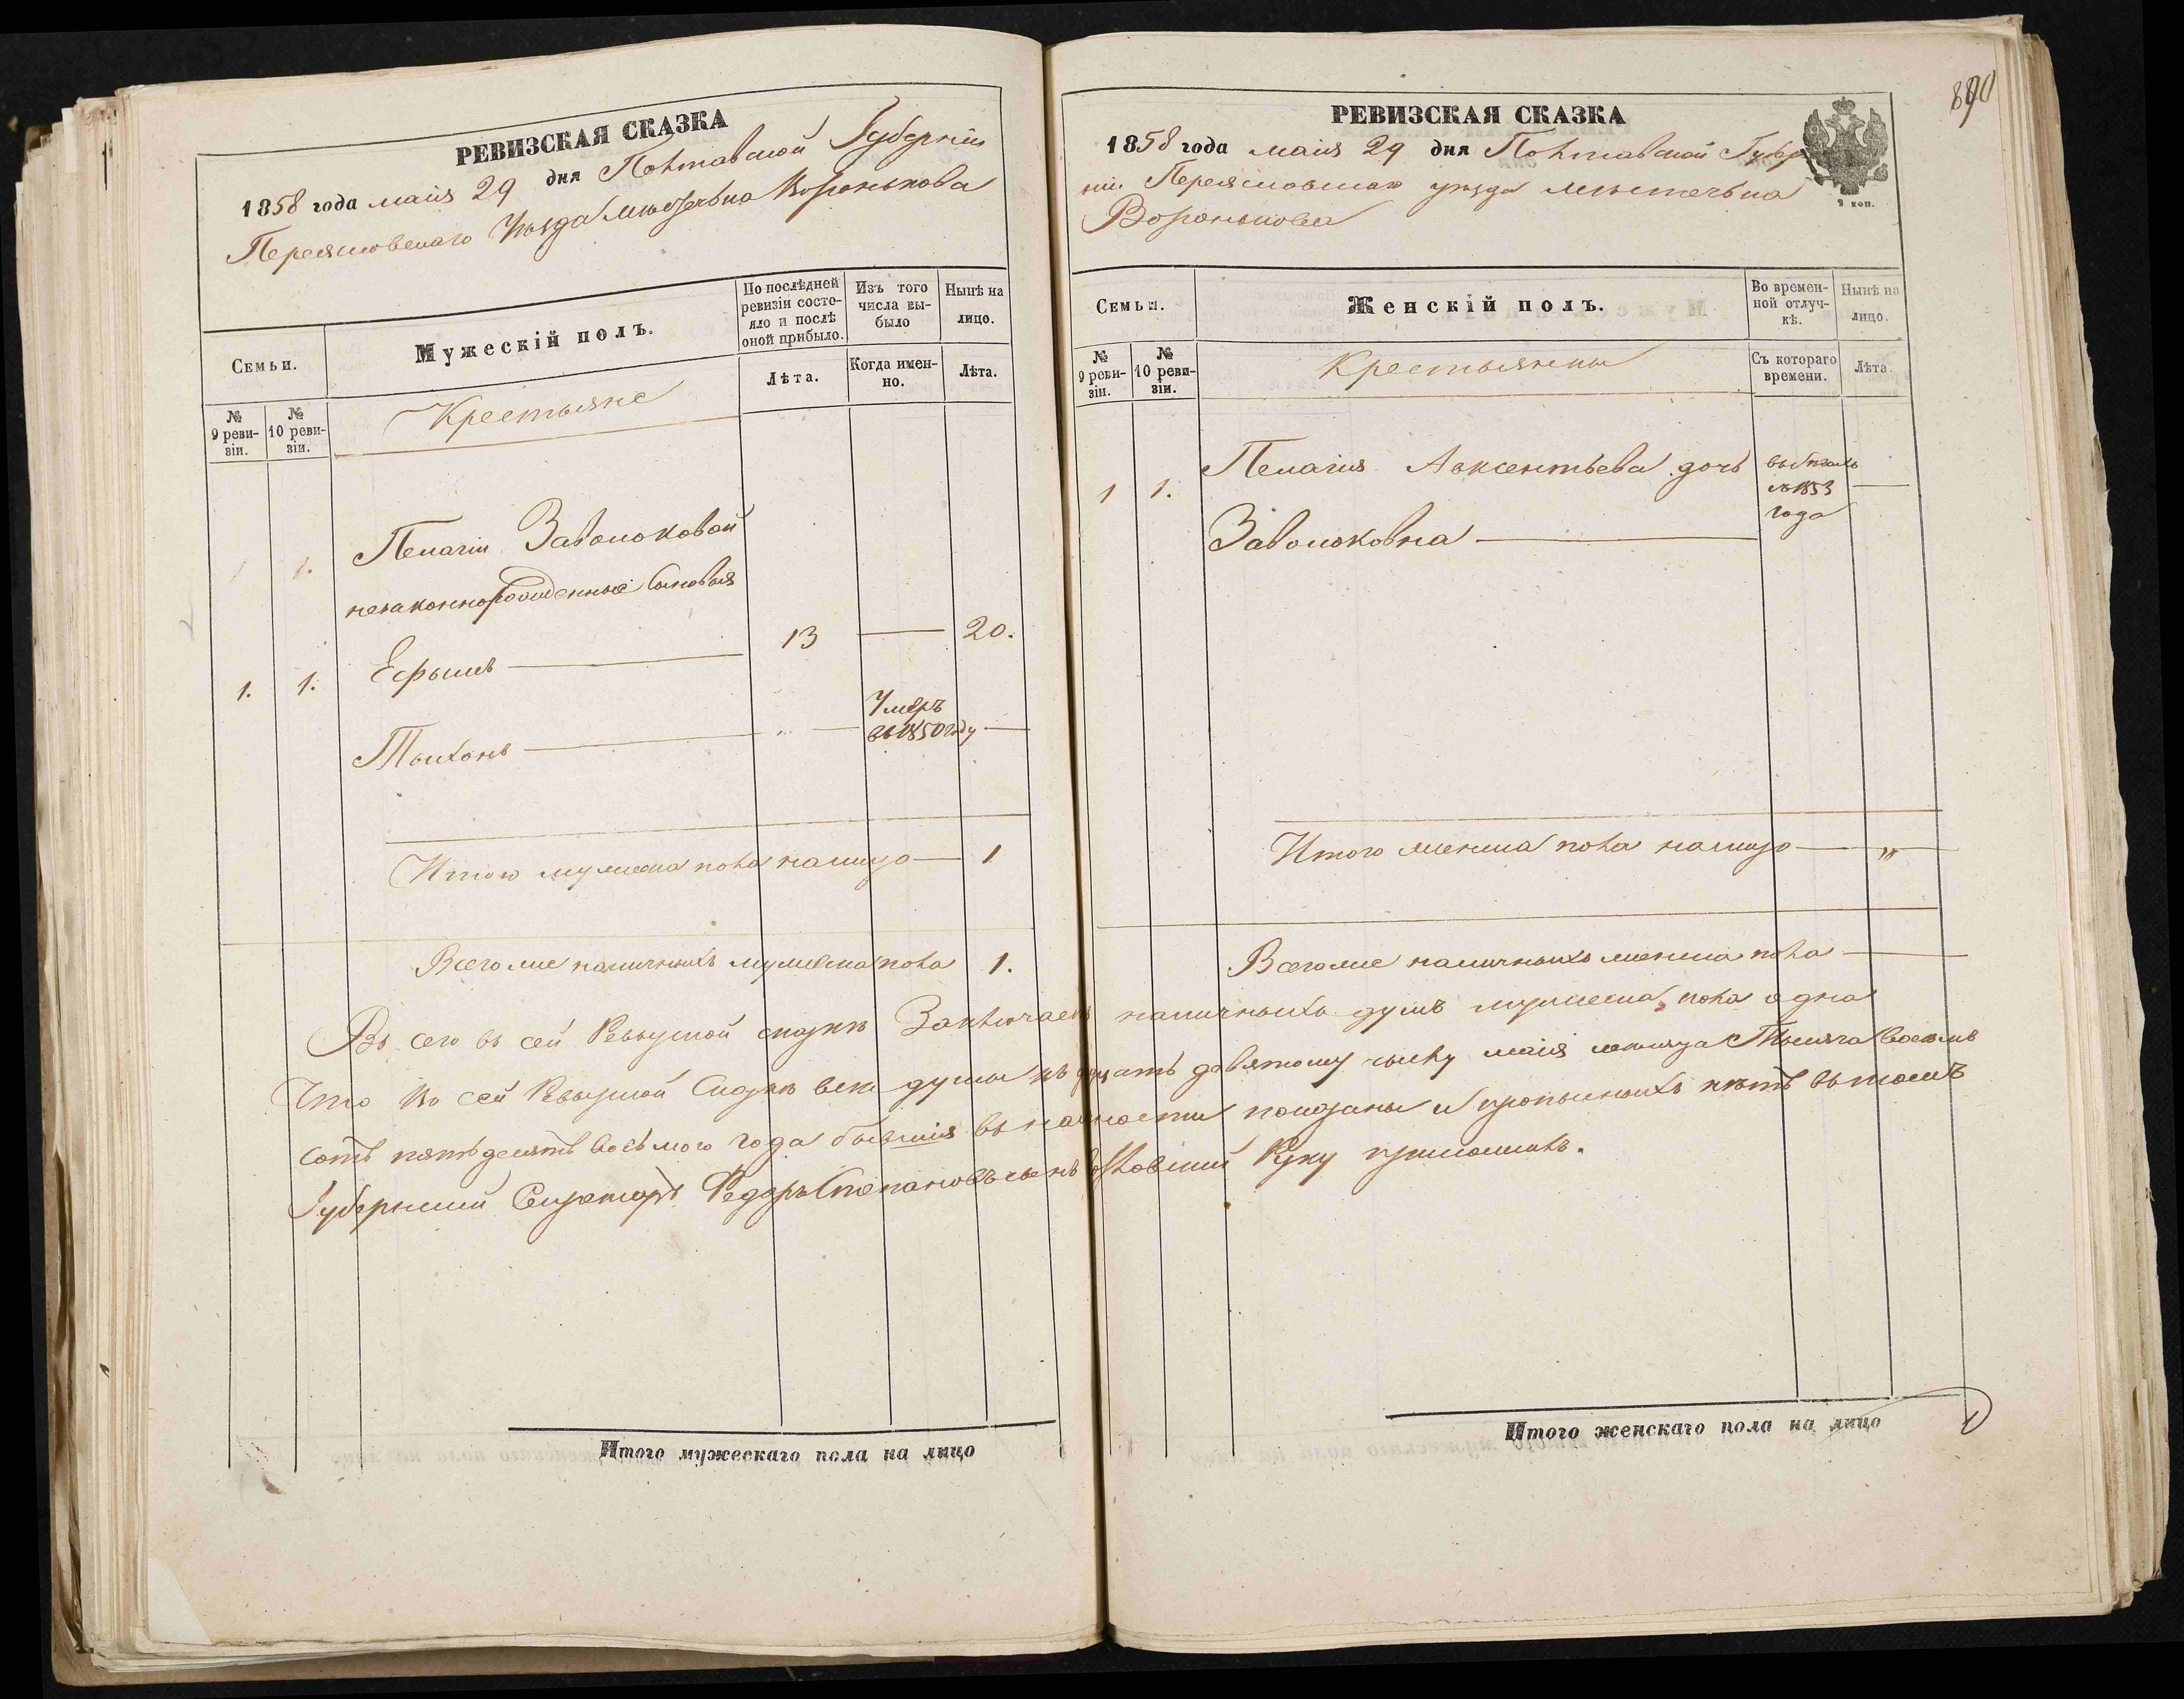 РЕВИЗСКАЯ СКАЗКА
1858 года маія 29 дня Полтавской Губерніи
Переясловскаго Уѣзда мѣстечька Воронькова
Семьи.
Мужескій полъ.
По послѣдней ревизіи состояло и послѣ оной прибыло.
Изъ того числа выбыло
Нынѣ на лицо.
№ 9 ревизіи.
№ 10 ревизіи.
Крестьяне
Лѣта.
Когда именно.
Лѣта.
1 1. Пелагіи Заволоковой
незаконнорожденные Сыновья
1. 1. Ефымъ — 13 — 20.
Тыхонъ — „ — Умеръ
въ 1850 году —
Итого мужеска пола налицо — 1
Всегоже наличныхъ мужеска пола 1.
РЕВИЗСКАЯ СКАЗКА
890
1858 года маія 29 дня Полтавской Губер
ніи Переясловскаго уѣзда мѣстечька
Воронькова
2 коп.
Семьи.
Женскій полъ.
Во временной отлучкѣ.
Нынѣ на лицо.
№ 9 ревизіи.
№ 10 ревизіи.
Крестьянки
Съ котораго времени.
Лѣта.
1 1. Пелагия Авксентьева дочь
Заволоковна —
въ бѣгахъ
съ 1853 —
года
Итого женска пола налицо — „
Всегоже наличныхъ женска пола —
Въ сего въ сей Ревызской сказкѣ Заключается наличныхъ душъ мужеска пола одна
Что Во сей Ревызской Сказкѣ все души къ двадцать девятому числу маія месяца Тысяча Восемь
сотъ пятьдесятъ восьмого года бывшия въ налычности показаны и прописныхъ нѣтъ въ томъ
Губернский Секретарь Федоръ Степановъ сынъ Руку приложилъ.
Итого мужескаго пола на лицо
Итого женскаго пола на лицо